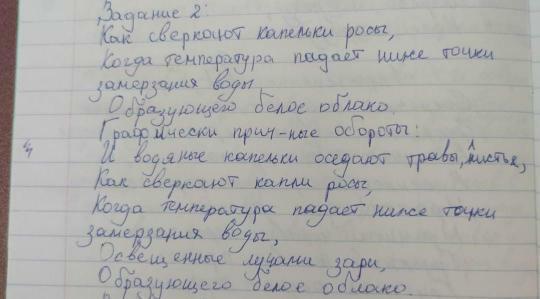 Задание 2:
Как сверкают капельки росы,
Когда температура падает ниже точки
замерзания воды
Образующего белое облако.
Графически прич-ные обороты:
И водяные капельки оседают травы, листья,
Как сверкают капли росы,
Когда температура падает ниже точки
замерзания воды,
Освещенные лучами зари,
Образующего белое облако.